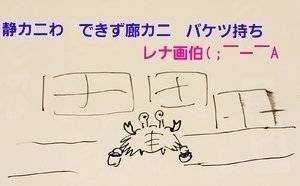 静カ二わ　できず廊カ二　バケツ持ち
レナ画伯(；￣ー￣A